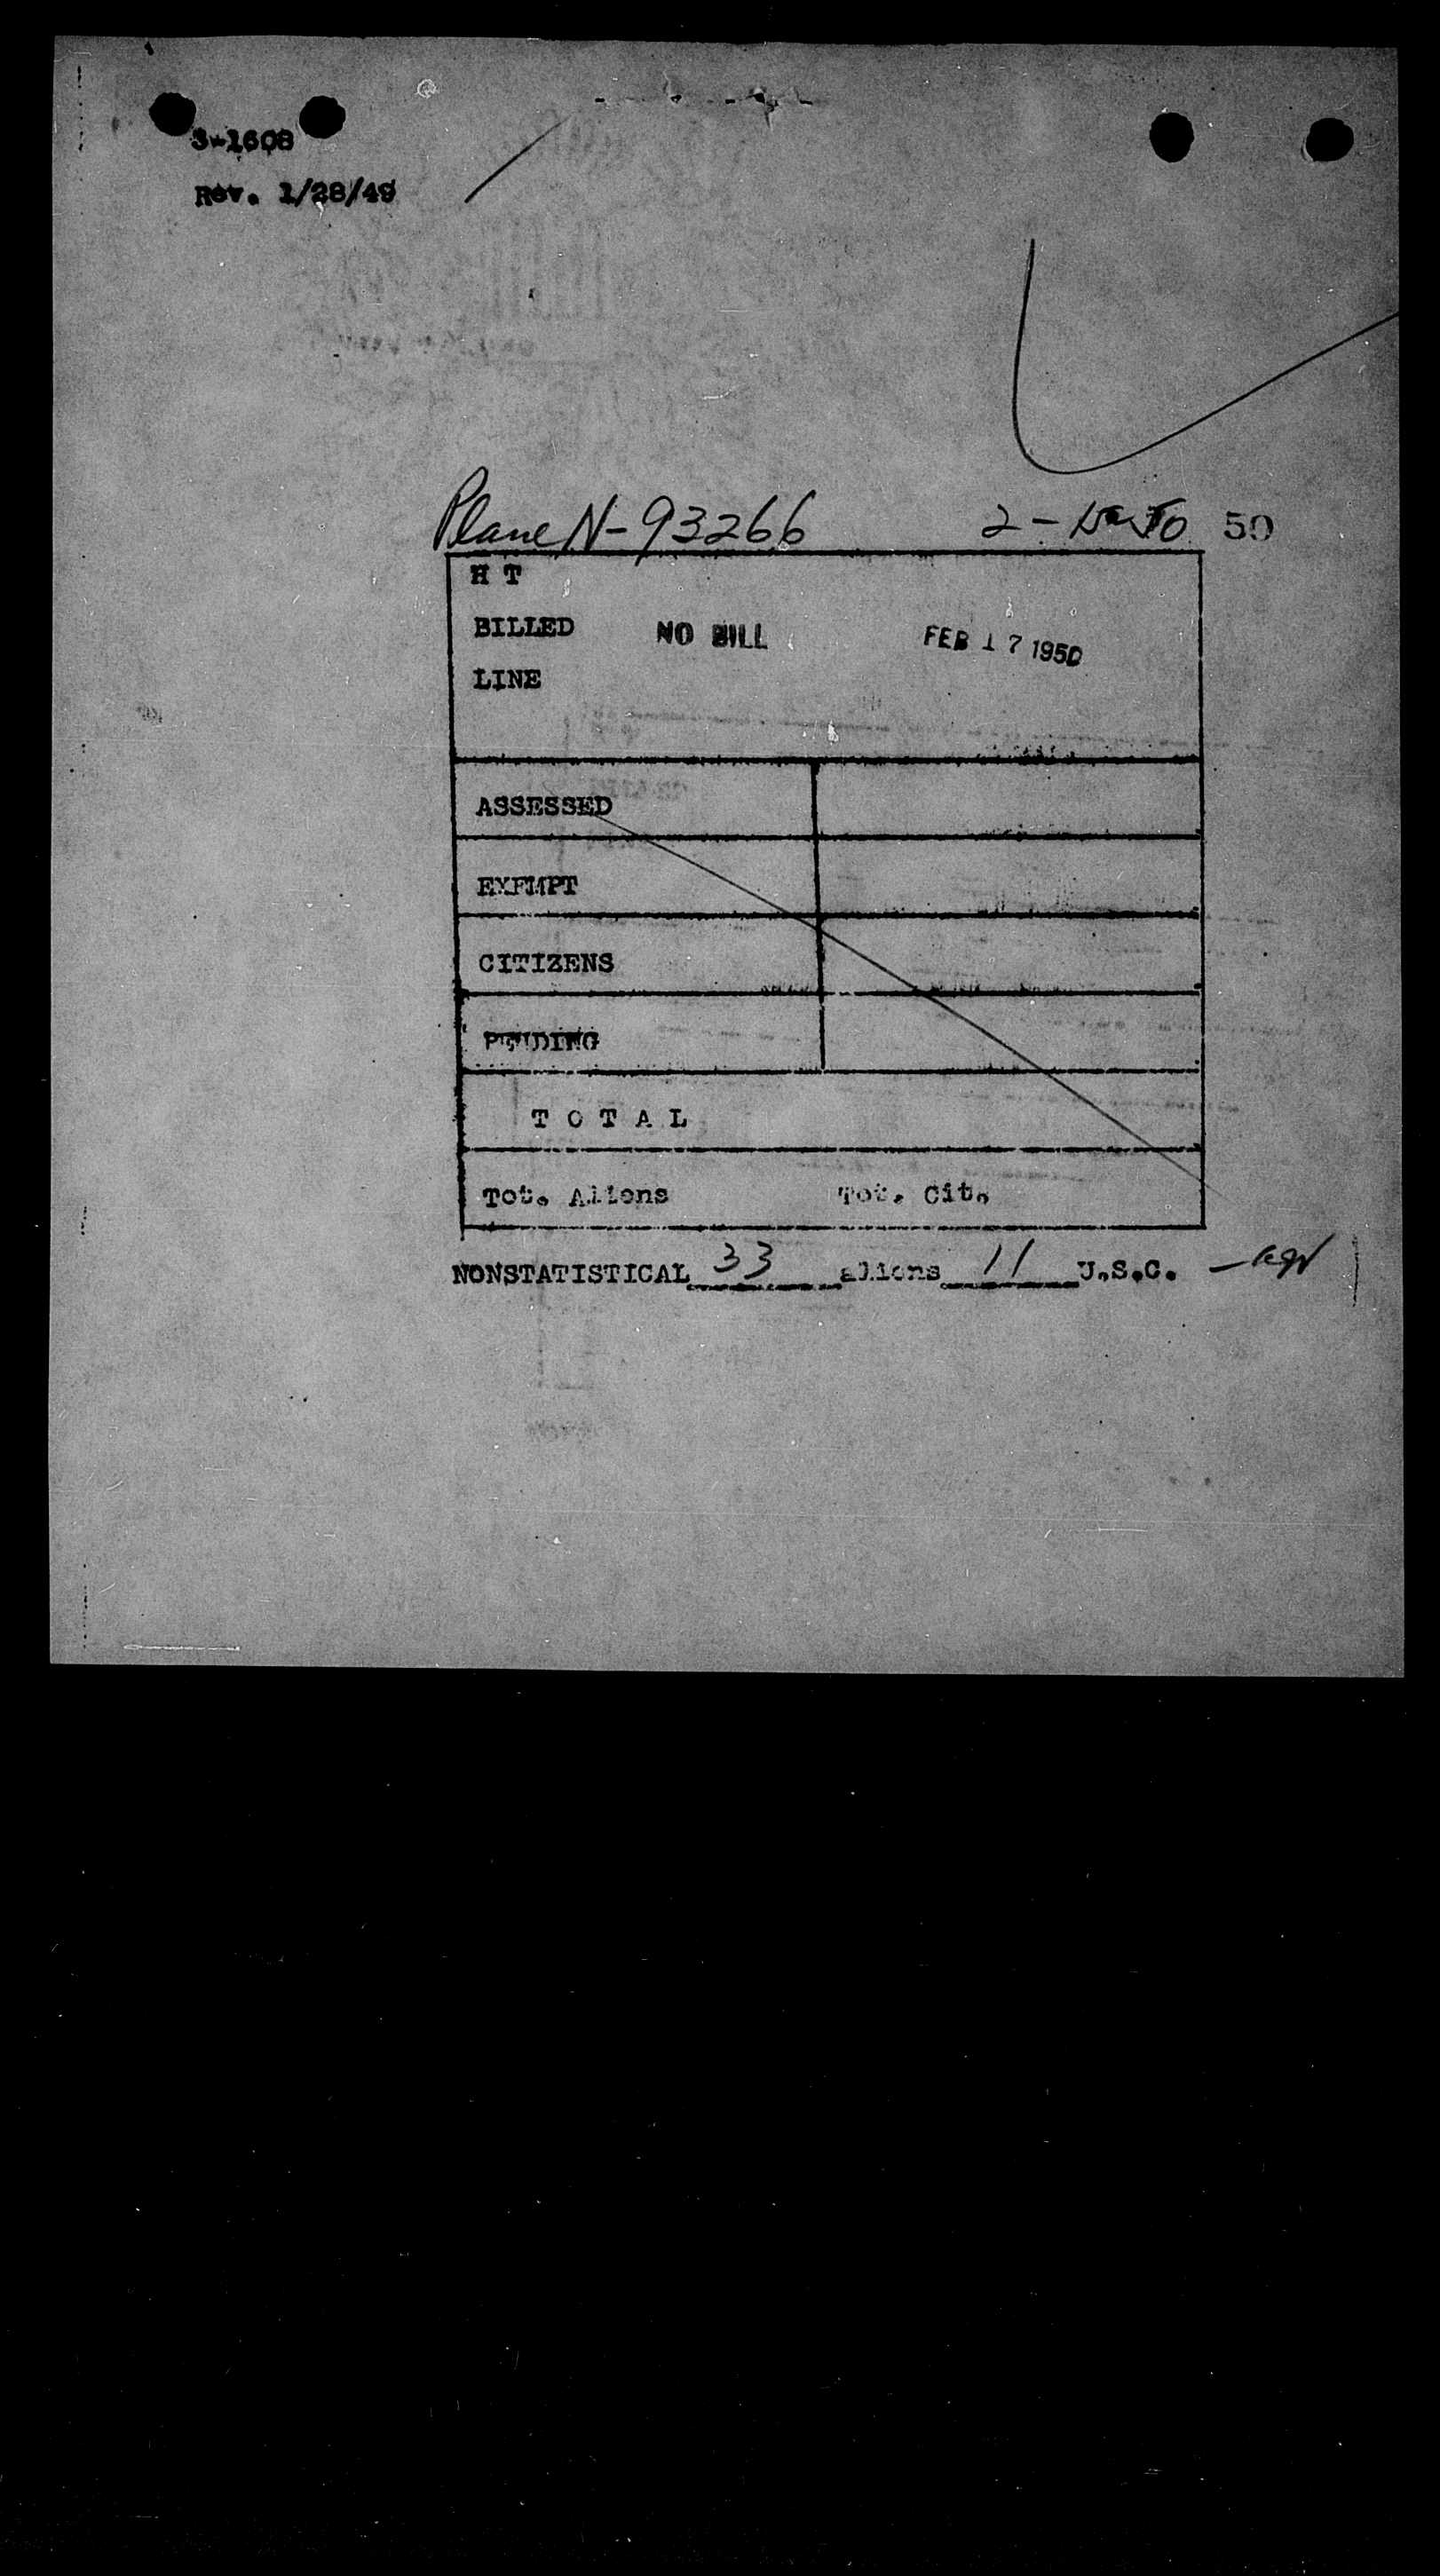 3-1608
Rev. 1/28/49
Plane N-93266 2-15-50 50
H T
BILLED NO BILL FEB 17 1950
LINE
ASSESSED
EXEMPT
CITIZENS
PENDING
T O T A L
Tot. Aliens Tot. Cit.
NONSTATISTICAL 33 aliens 11 U.S.C.